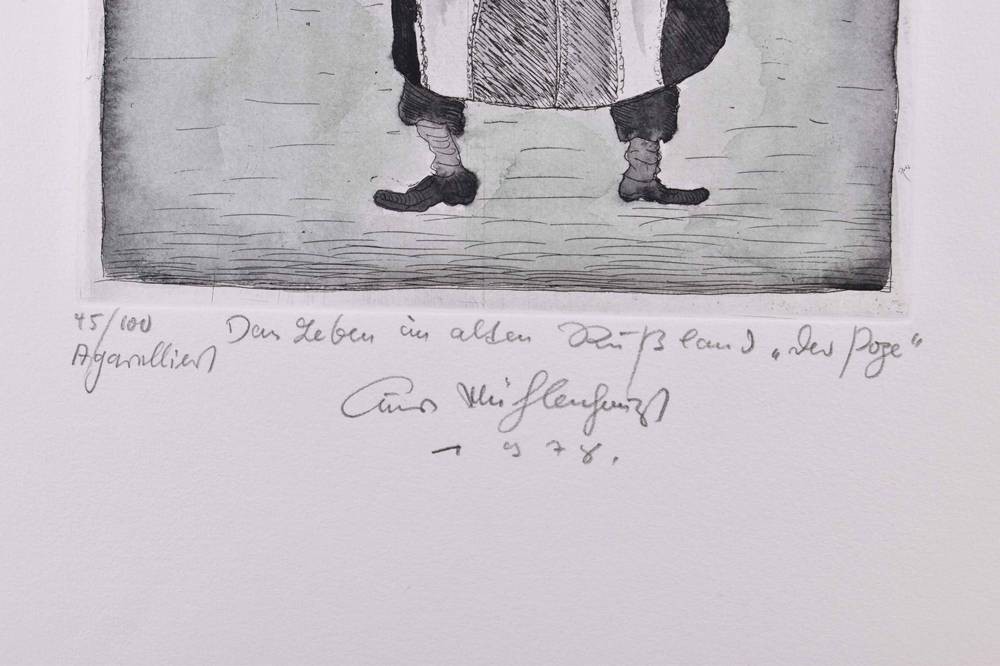 45/100 Das Leben im alten Rußland „der Pope“
Aquarelliert
Curt Mühlenhaupt
1978.